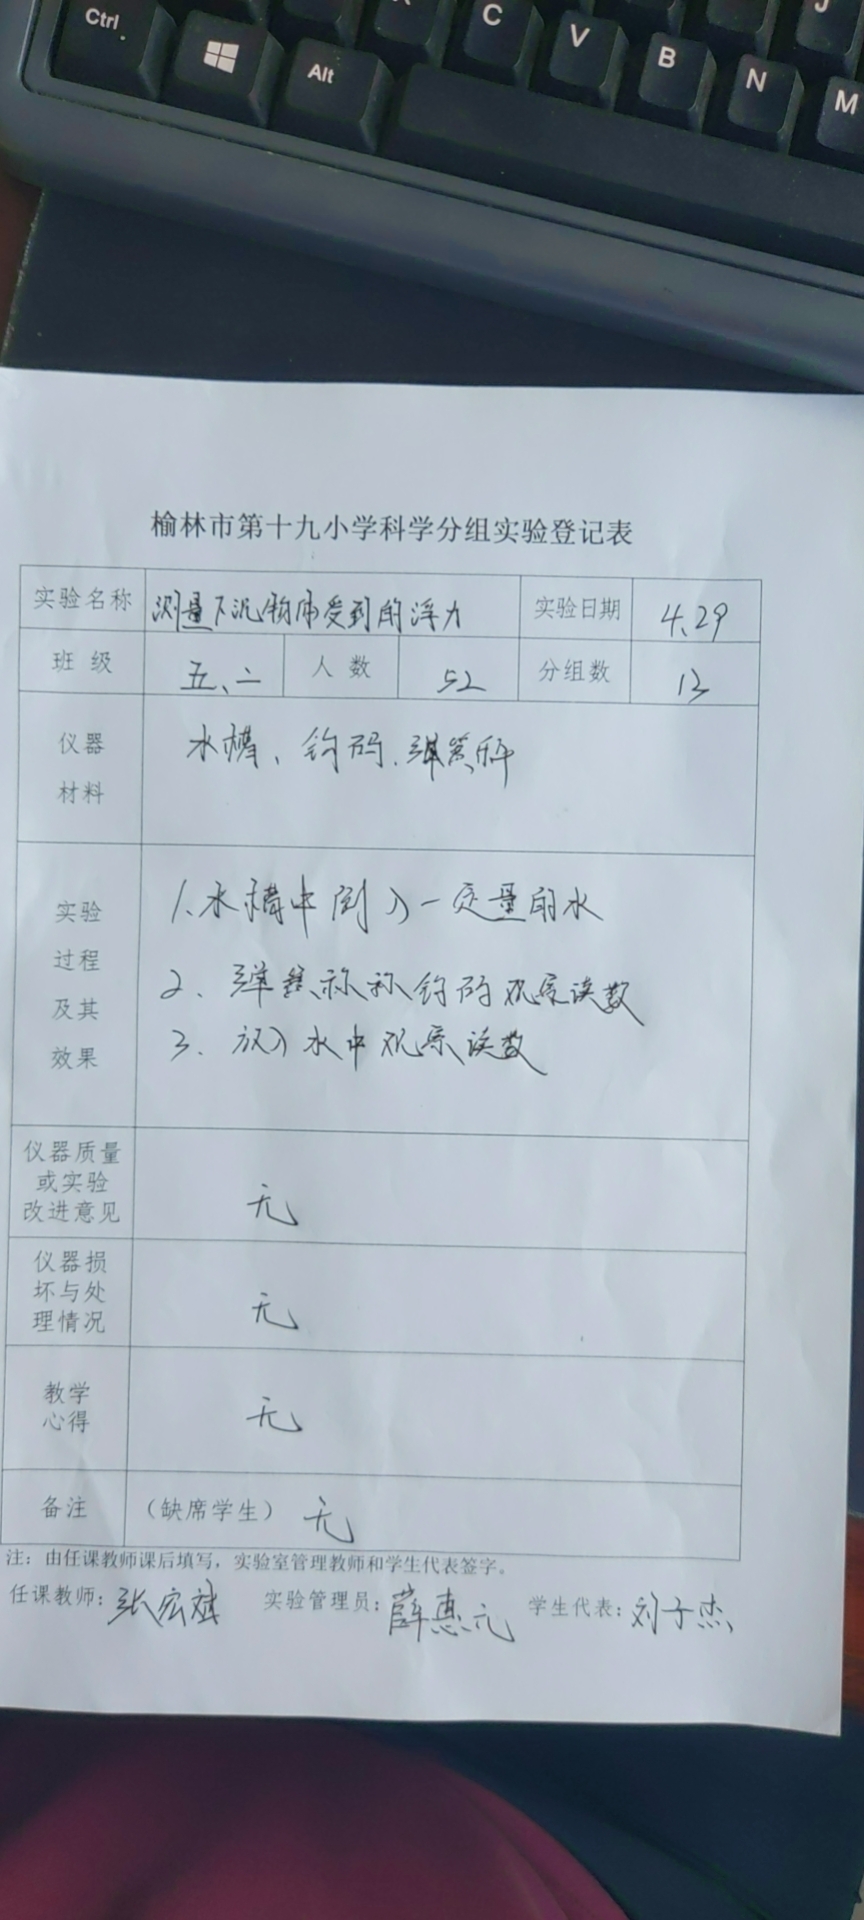 Ctrl
Alt
C
V
B
N
M
J
榆林市第十九小学科学分组实验登记表
实验名称 测量下沉物体受到的浮力 实验日期 4.29
班 级 五、二 人 数 52 分组数 13
仪器
材料
水槽、钩码、弹簧秤
实验
过程
及其
效果
1、水槽中倒入一定量的水
2、弹簧称称钩码观察读数
3、放入水中观察读数
仪器质量
或实验
改进意见
无
仪器损
坏与处
理情况
无
教学
心得
无
备注 （缺席学生） 无
注：由任课教师课后填写，实验室管理教师和学生代表签字。
任课教师：张宏斌 实验管理员：薛惠元 学生代表：刘子杰